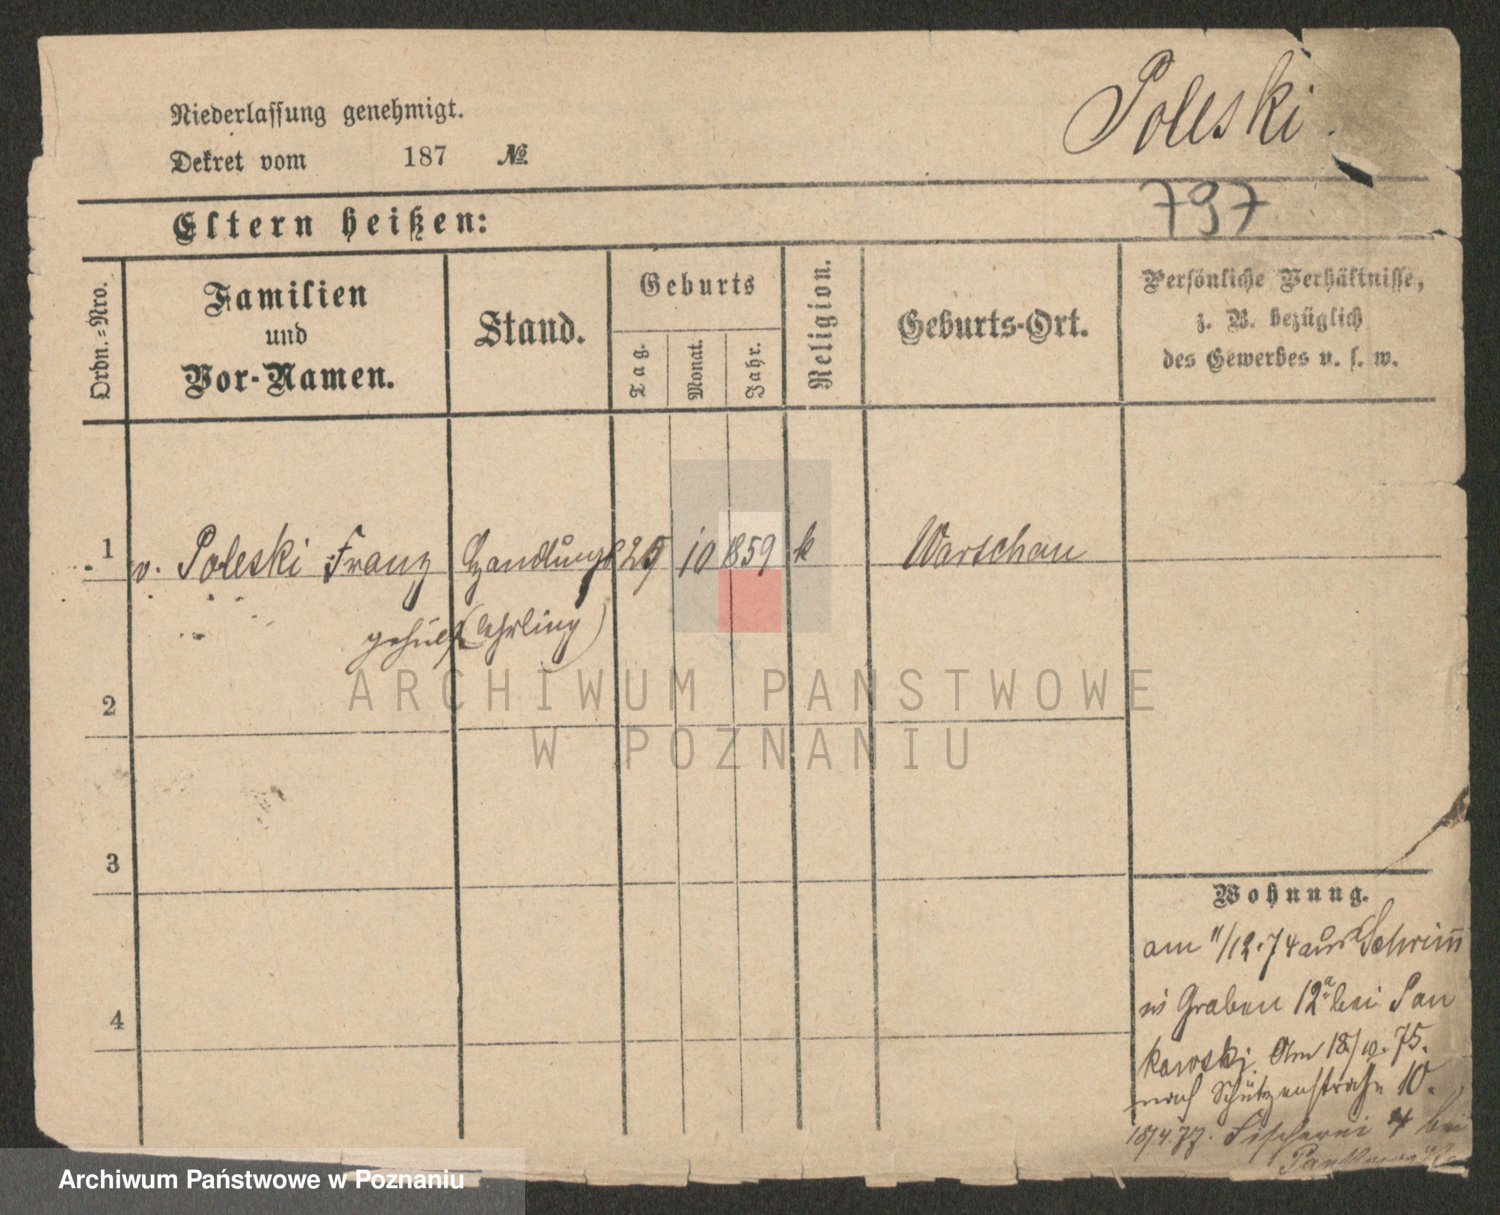 Niederlassung genehmigt.
Dekret vom 187 №
Poleski
797
Eltern heißen:
Ordn.-Nro.
Familien
und
Vor-Namen.
Stand.
Geburts
Tag.
Monat.
Jahr.
Religion.
Geburts-Ort.
Persönliche Verhältnisse,
z. B. bezüglich
des Gewerbes u. s. w.
1 v. Poleski Franz Handlungs 25 10 859 k Warschau
gehülf (lehrling)
2
3
4
Wohnung.
am 11/12.74 aus Schrim̄
Graben 12a bei Pan
kowski. Am 18/10.75.
nach Schützenstraße 10.
18/4.77. Fischerei 4 bei
ARCHIWUM PAŃSTWOWE
W POZNANIU
Archiwum Państwowe w Poznaniu